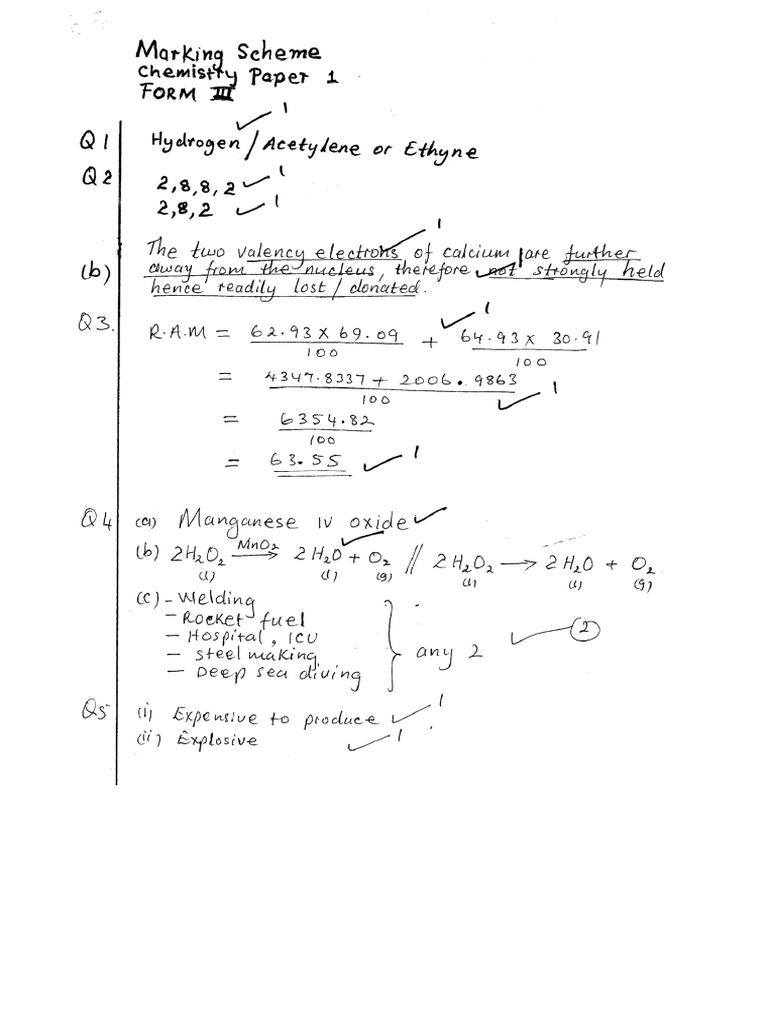 Marking Scheme
Chemistry Paper 1
FORM III
Q1 Hydrogen / Acetylene or Ethyne ✓ 1
Q2 2,8,8,2 ✓ 1
2,8,2 ✓ 1
(b) The two valency electrons of calcium are further ✓ 1
away from the nucleus, therefore not strongly held ✓ 1
hence readily lost / donated.
Q3. R.A.M = 62.93 x 69.09 / 100 + 64.93 x 30.91 / 100 ✓ 1
= 4347.8337 + 2006.9863 / 100 ✓ 1
= 6354.82 / 100
= 63.55 ✓ 1
Q4 (a) Manganese IV oxide ✓
(b) 2H₂O₂(l) MnO₂→ 2H₂O(l) + O₂(g) // 2H₂O₂(l) → 2H₂O(l) + O₂(g) ✓
(c) - Welding
- Rocket fuel
- Hospital, ICU
- Steel making
- Deep sea diving
} any 2 ✓ 2
Q5 (i) Expensive to produce ✓ 1
(ii) Explosive ✓ 1